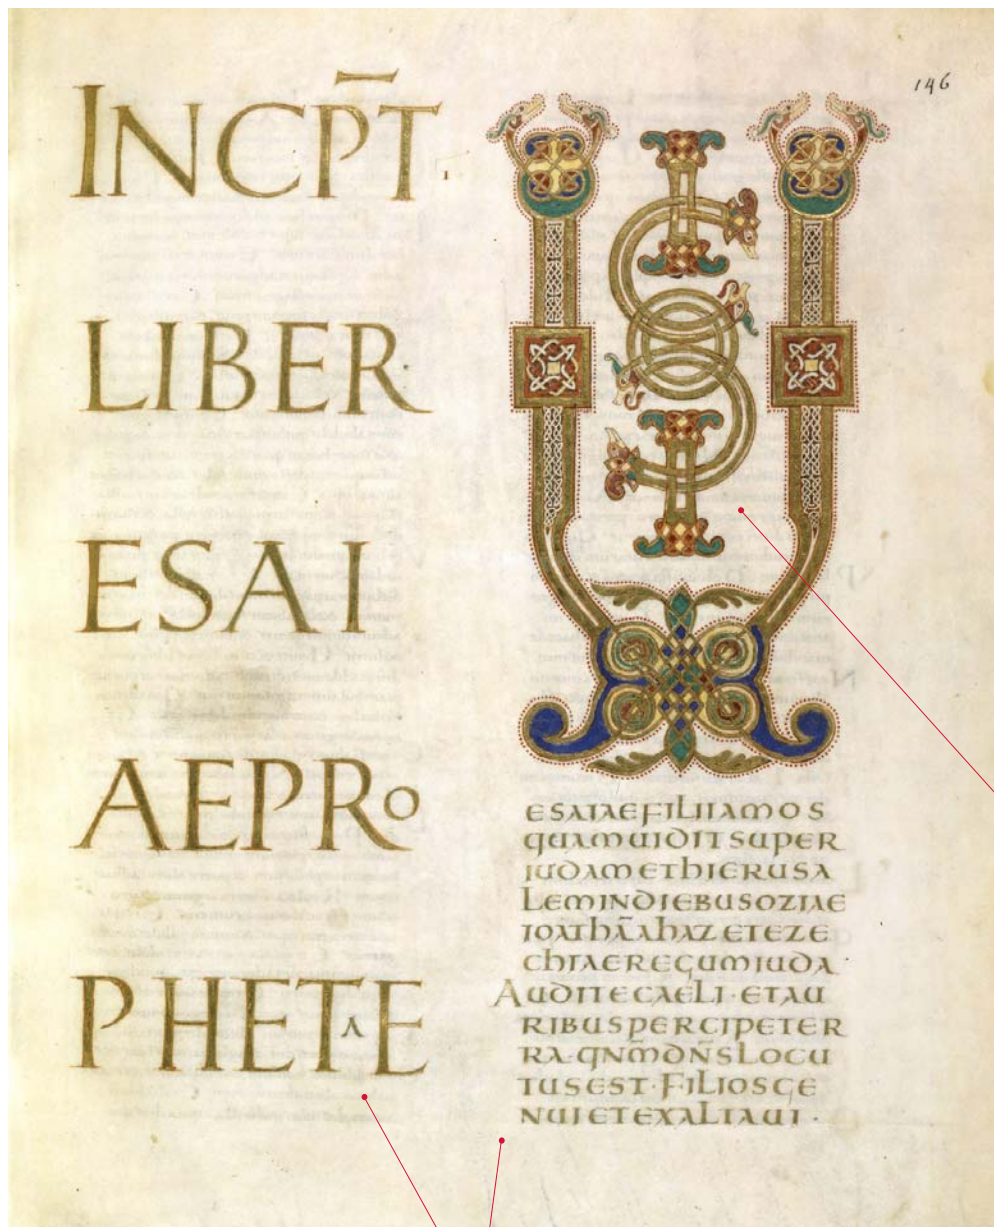 146
INCP̄T·
LIBER
ESAI
AEPRO
PHETᴀE
VISIO
ESAIAEFILIIAMOS
QUAMUIDITSUPER
IUDAMETHIERUSA
LEMINDIEBUSOZIAE
IOATHĀAHAZETEZE
CHIAEREGUMIUDA·
AUDITECAELI·ETAU
RIBUSPERCIPETER
RA·QNM̄DN̄SLOCU
TUSEST·FILIOSGE
NUIETEXALTAUI·